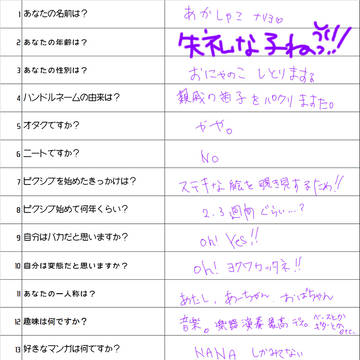 1 あなたの名前は? あかしゃこ なりヨ。
2 あなたの年齢は? 失礼な子ねっ!!
3 あなたの性別は? おにゃのこ しとります
4 ハンドルネームの由来は? 親戚の苗字をパクりました。
5 オタクですか? やや。
6 ニートですか? No
7 ピクシブを始めたきっかけは? ステキな絵を覗き見するため!!
8 ピクシブ始めて何年くらい? 2.3週間ぐらい…?
9 自分はバカだと思いますか? oh! Yes!!
10 自分は変態だと思いますか? oh! ヨクワカッタネ!!
11 あなたの一人称は? あたし、あーちゃん おばちゃん
12 趣味は何ですか? 音楽。楽器演奏最高です。ベースとかギターとかetc.
13 好きなマンガは何てすか? NANA しかみせない